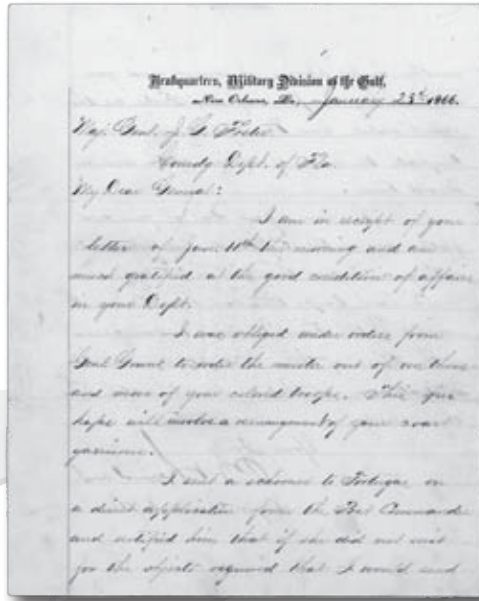 Headquarters, Military Division of the Gulf,
New Orleans, La., January 25th 1866.
Maj. Genl. J. G. Foster
Comdg Dept. of Fla.
My Dear General:
I am in receipt of your
letter of Jany 10th this morning and am
much gratified at the good condition of affairs
in your Dept.
I was obliged under orders from
Genl Grant to order the muster out of one
and more of your colored troops. This
hope will involve a rearrangement of your coast
garrisons.
I sent a schooner to Tortugas on
a direct application from the Post Commander
and notified him that if she did not
for the objects required that I would send